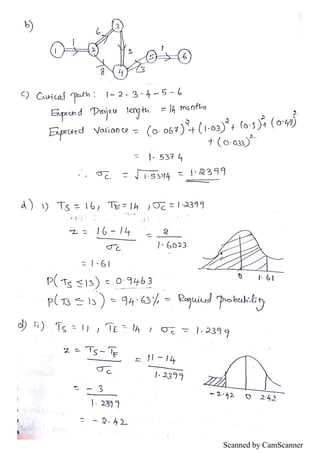 b)
3
6
1 1 2 5 5 1 6
8 4 3
c) Critical path: 1-2-3-4-5-6
Expected Project length = 14 months
Expected Variance = (0.067)² + (1.03)² + (0.5)² + (0.47)²
+ (0.033)²
= 1.5374
∴ σc = √1.5374 = 1.2399
d) i) Ts = 16, TE = 14, σc = 1.2399
z = 16-14 / σc = 2 / 1.6023
0 1.61
= 1.61
P(Ts ≤ 13) = 0.9463
P(Ts ≤ 13) = 94.63% = Required Probability
d) ii) Ts = 11, TE = 14, σc = 1.2399
z = Ts - TE / σc = 11-14 / 1.2399
= -3 / 1.2399
-2.42 0 2.42
= -2.42
Scanned by CamScanner